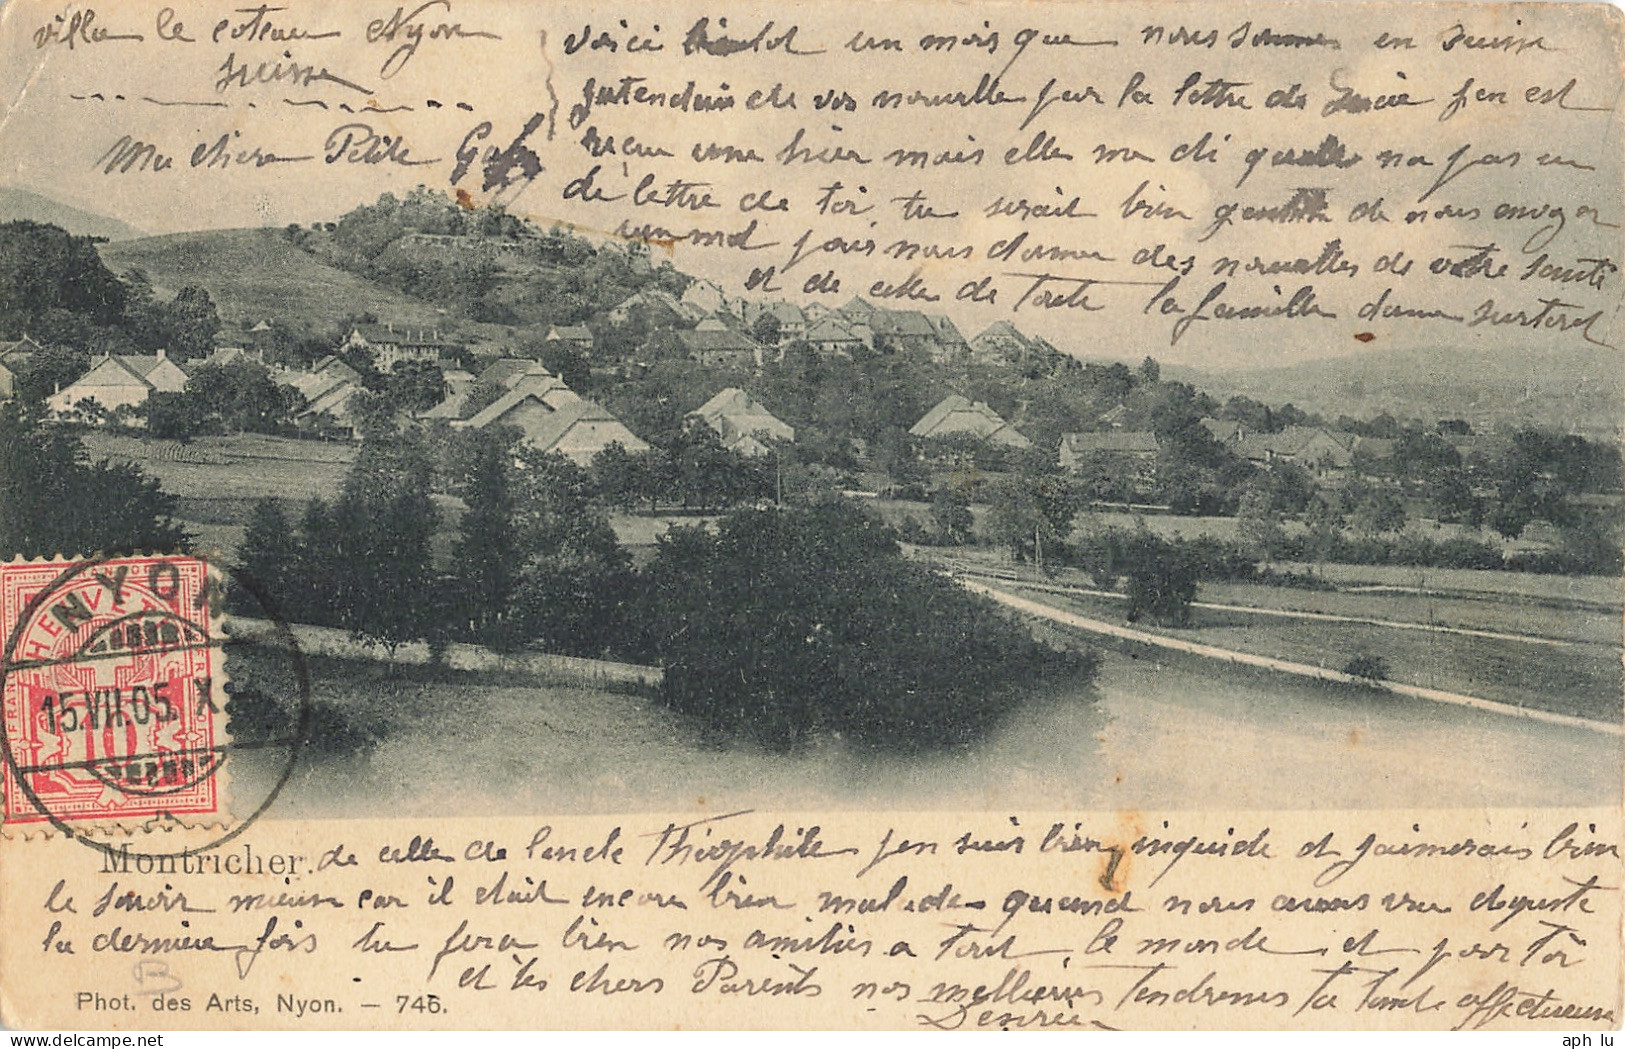 villa le coteau Nyon
suisse
Ma chere Petite Gaby
voici bientot un mois que nous sommes en suisse
jattendais de vos nouvelle par la lettre de Lucie jen est
recu une hier mais elle ma di quelle na pas eu
de lettre de toi, tu serait bien gentille de nous envoyer
un mot pour nous donner des nouvelles de votre santé
et de celle de toute la famille donne surtout
Montricher. de celle de loncle Théophile jen suis bien inquiéde et jaimerais bien
le savoir mieux car il était encore bien malade quand nous avons vue
la derniere fois tu fera bien nos amitiés a tout le monde et pour toi
et tes chers Parents nos meilleures tendresses ta tante affectueuse
Desirée
Phot. des Arts, Nyon. – 746.
HELVETIA
FRANCO
FRANCO
10
NYON
15.VII.05. X
aph lu